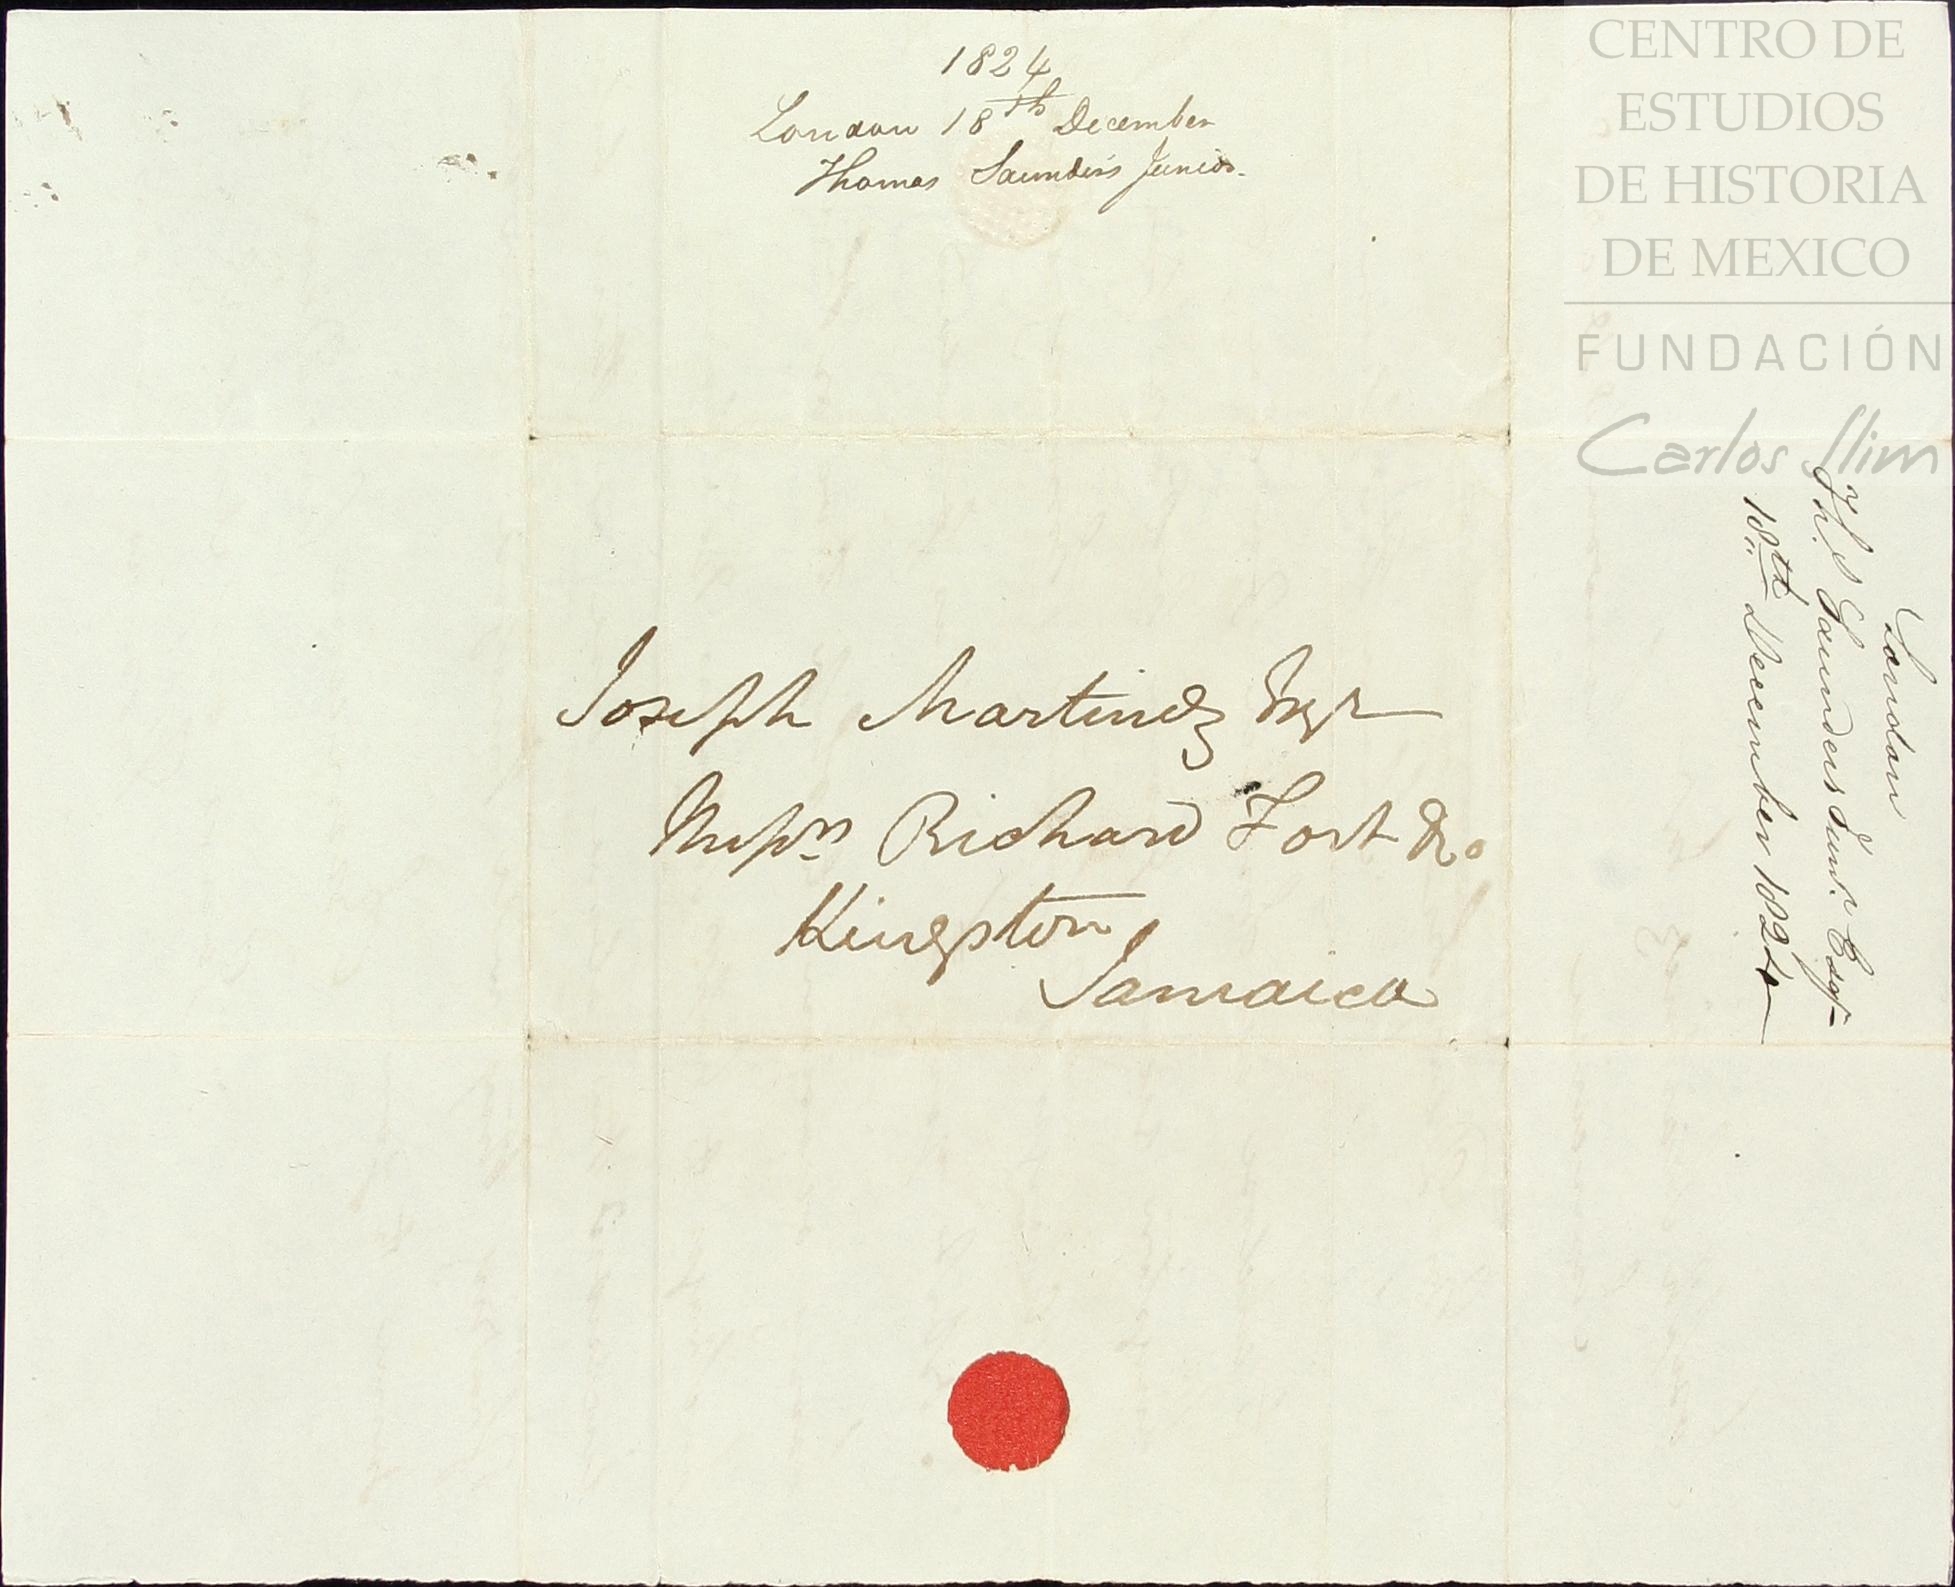 1824
London 18th December
Thomas Saunders Junior.
CENTRO DE
ESTUDIOS
DE HISTORIA
DE MEXICO
FUNDACIÓN
Carlos Slim
Joseph Martinez Esqr
Messrs Richard Fort & Co
Kingston
Jamaica
London
Ths. Saunders Junr. Esqr
18th December 1824